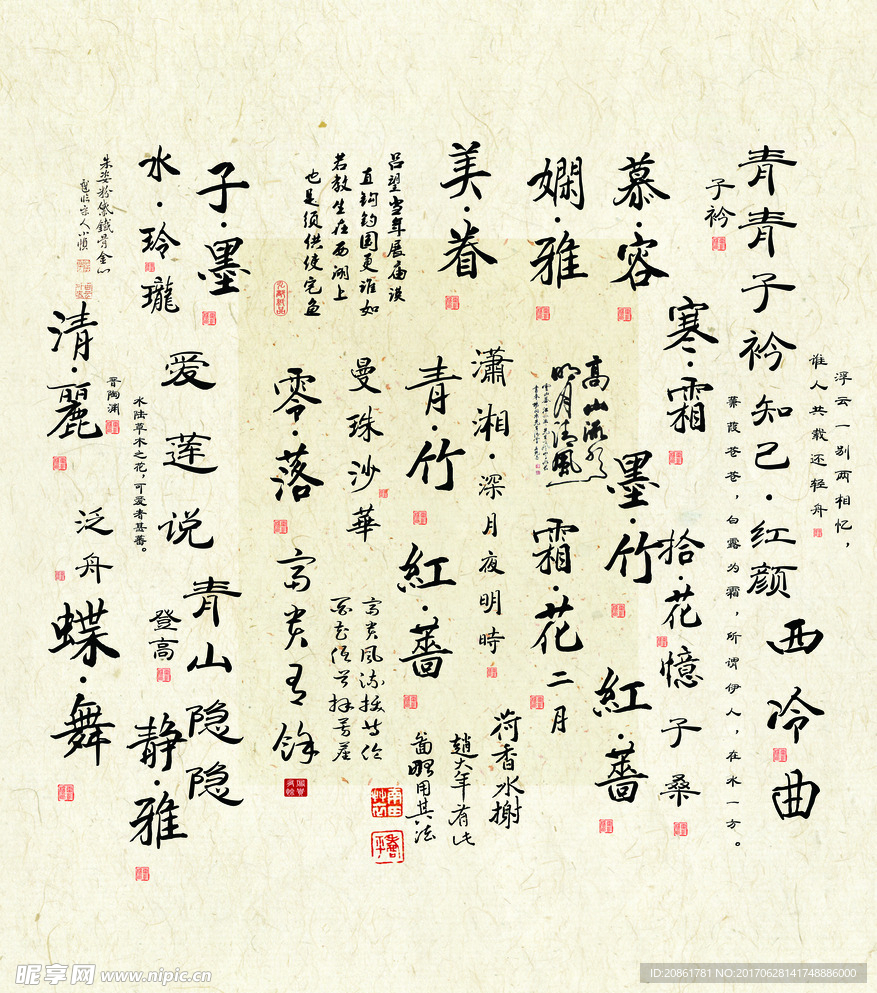 浮云一别两相忆，
谁人共载还轻舟
青青子衿知己·红颜
子衿
蒹葭苍苍，白露为霜，所谓伊人，在水一方。
西冷曲
慕·容
寒·霜
墨·竹
拾·花
憶子桑
紅·薔
嫻·雅
高山流水
明月清風
霜·花二月
美·眷
瀟湘·深月夜明時
青·竹
紅·薔
荷香水榭
趙大年有此
畵
用其法
吕望当年展庙谟
直钩钓国更谁如
若教生在西湖上
也是须供使宅鱼
曼珠沙華
零·落
富贵有馀
富贵风流拔等伦
百花低首拜芳尘
子·墨
水·玲瓏
朱姿粉黛鐵骨金心
爱莲说
晋陶渊
水陆草木之花，可爱者甚蕃。
清·麗
泛舟
蝶·舞
登高
青山隐隐
静·雅
昵享网 www.nipic.cn
ID:20861781 NO:20170628141748886000